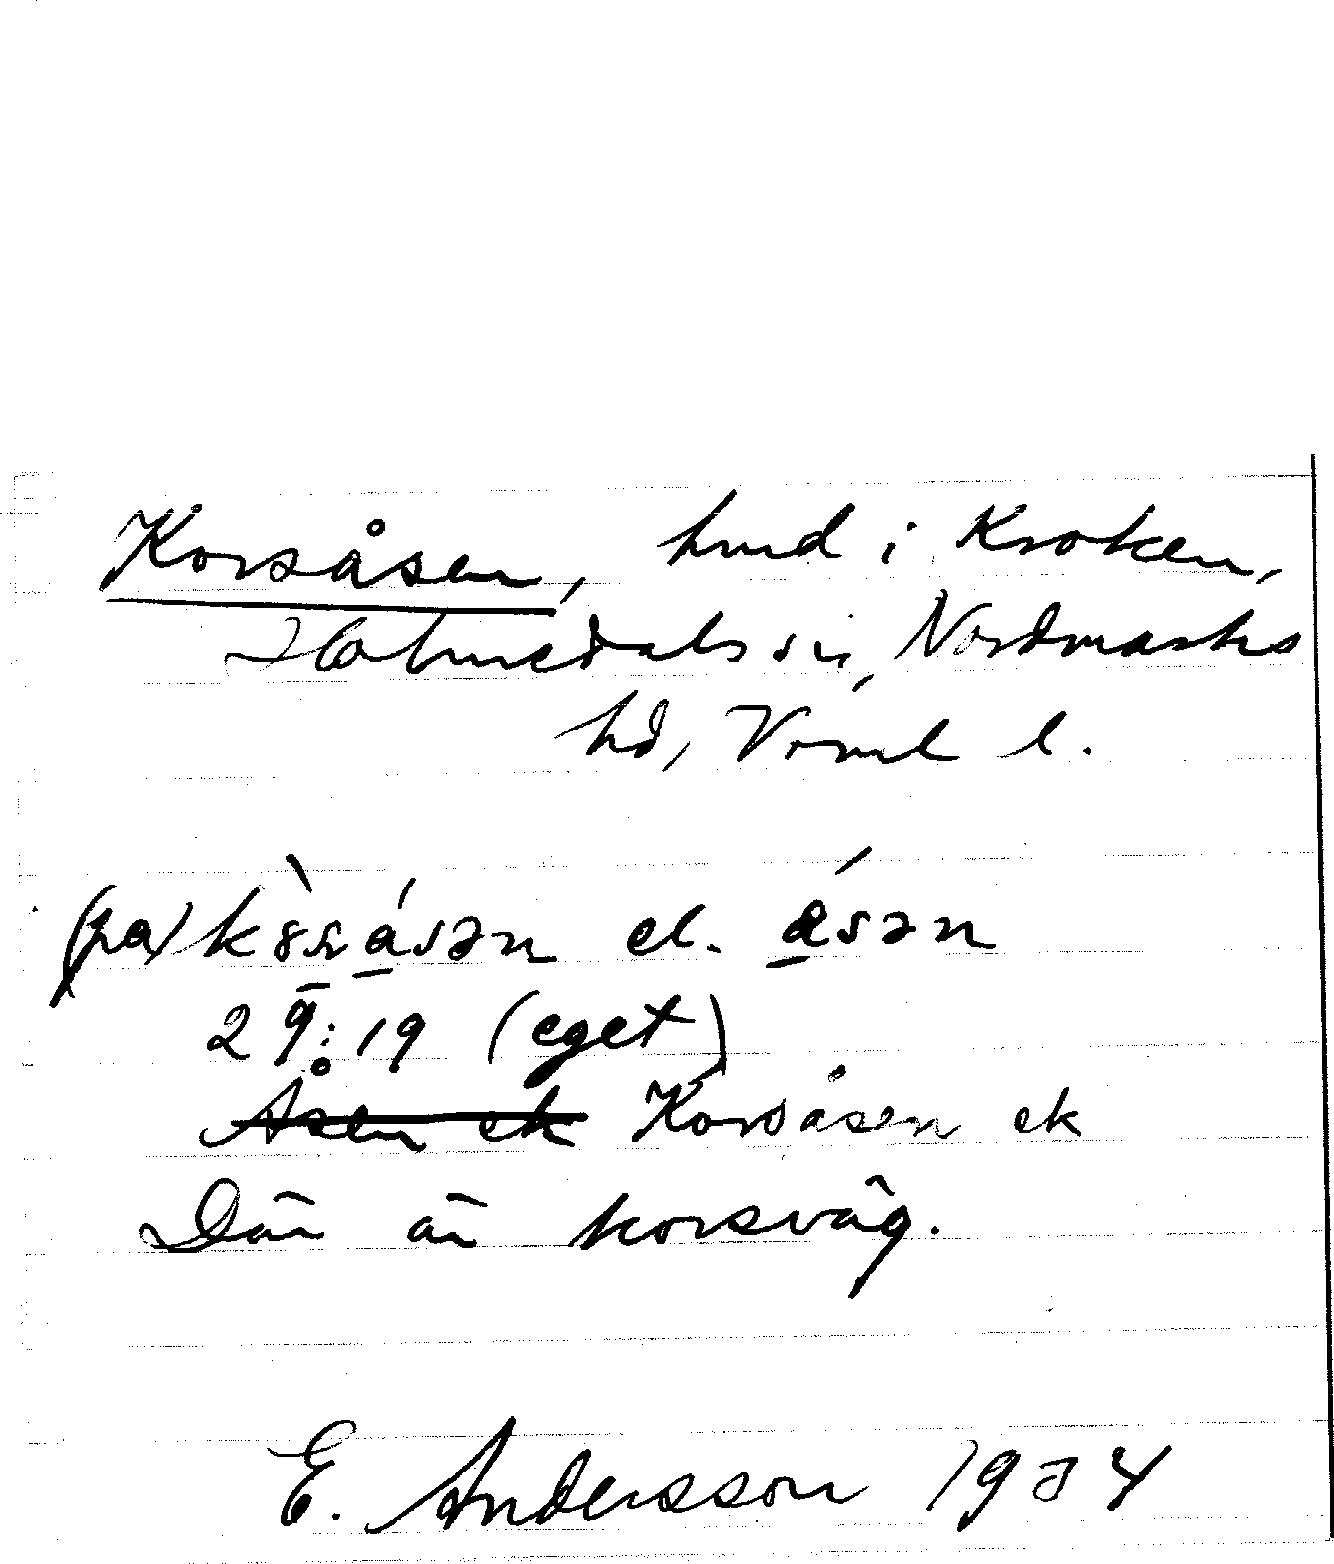 Korsåsen, hmd i Kroken,
Holmedals sn, Nordmarks
hd, Vrml l.
(pa) el.
29:19 (eget)
Åsen ek Korsåsen ek
Där är korsväg.
E. Andersson 1934